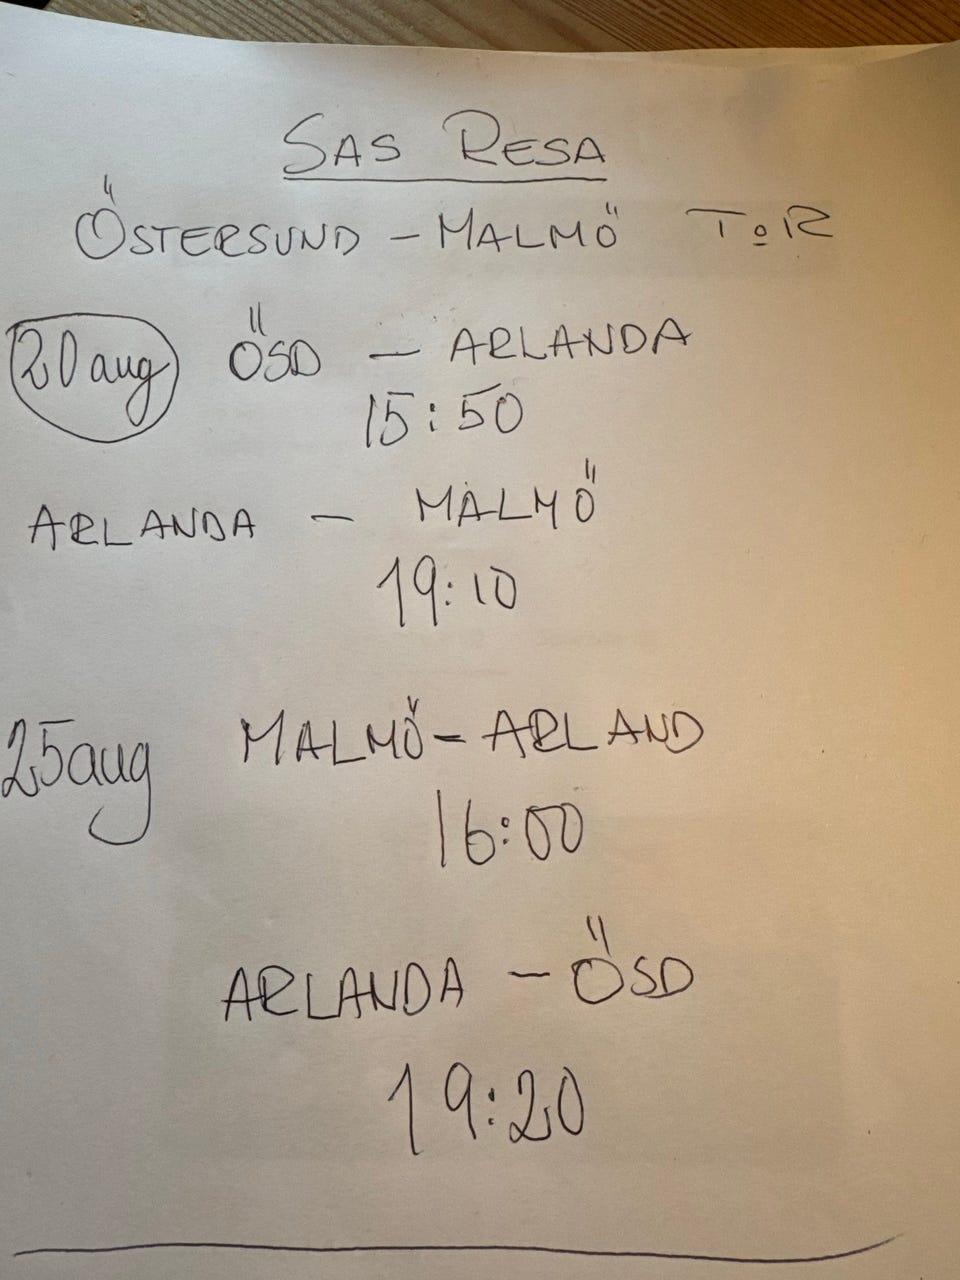 SAS RESA
ÖSTERSUND - MALMÖ ToR
20 aug ÖSD - ARLANDA
15:50
ARLANDA - MALMÖ
19:10
25 aug MALMÖ - ARLAND
16:00
ARLANDA - ÖSD
19:20